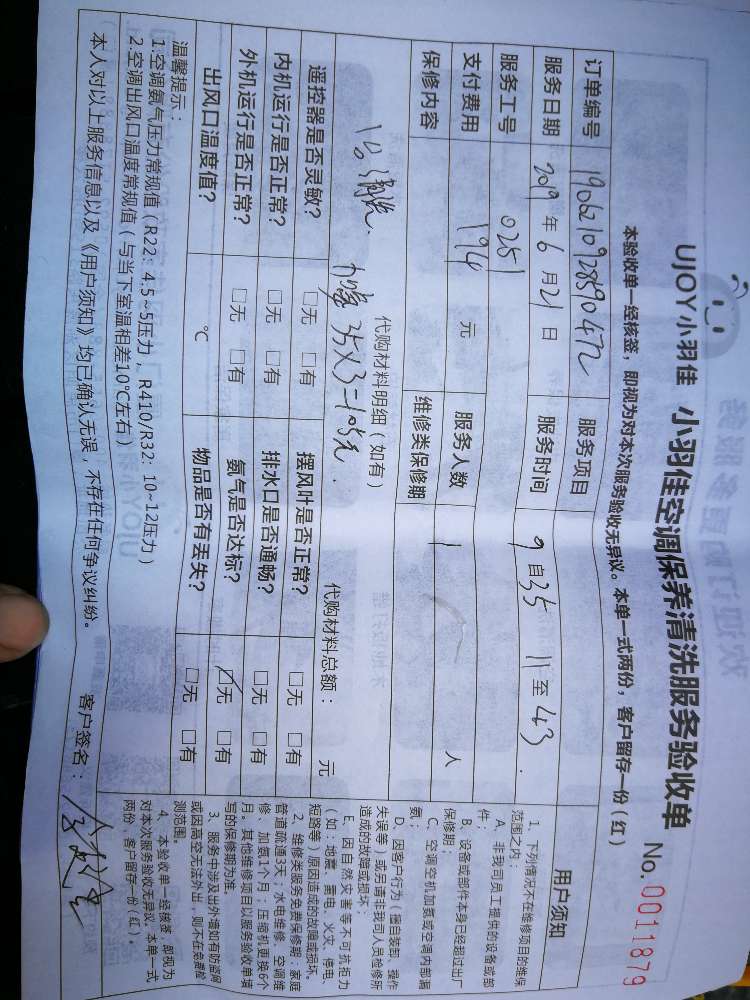 UJOY小羽佳 小羽佳空调保养清洗服务验收单 No. 0011879
本验收单一经核签，即视为对本次服务验收无异议。本单一式两份，客户留存一份（红）
订单编号 1906210928590472 服务项目
服务日期 2019 年 6 月 21 日 服务时间 9 自 35 11 至 43
服务工号 0251
支付费用 194 元 服务人数 1 人
保修内容 维修类保修期
代购材料明细（如有） 代购材料总额： 元
1台清洗 加氨 35×3=105元
遥控器是否灵敏？ □无 □有 摆风叶是否正常？ □无 □有
内机运行是否正常？ □无 □有 排水口是否通畅？ □无 □有
外机运行是否正常？ □无 □有 氨气是否达标？ □无 □有
出风口温度值？ ℃ 物品是否有丢失？ □无 □有
温馨提示：
1.空调氨气压力常规值（R22：4.5~5压力，R410/R32：10~12压力）
2.空调出风口温度常规值（与当下室温相差10℃左右）
本人对以上服务信息以及《用户须知》均已确认无误，不存在任何争议纠纷。 客户签名：
用户须知
1、下列情况不在维修项目的维保
范围之内：
A、非我司员工提供的设备或部
件；
B、设备或部件本身已经超过出厂
保修期；
C、空调空机加氨或空调内部漏
氨；
D、因客户行为（擅自装卸、操作
失误等）或另请非我司人员检修所
造成的故障或损坏；
E、因自然灾害等不可抗拒力
（如：地震、雷电、火灾、停电、
短路等）原因造成的故障或损坏。
2、维修类服务免费保修期：家庭
管道疏通3天；水电维修、空调维
修、加氨1个月；压缩机更换6个
月。其他维修项目以服务验收单填
写的保修期为准。
3、服务中涉及出外墙如遇防盗网
或因高空无法外出，则不在免费检
测范围。
4、本验收单一经核签，即视为
对本次服务验收无异议。本单一式
两份，客户留存一份（红）。